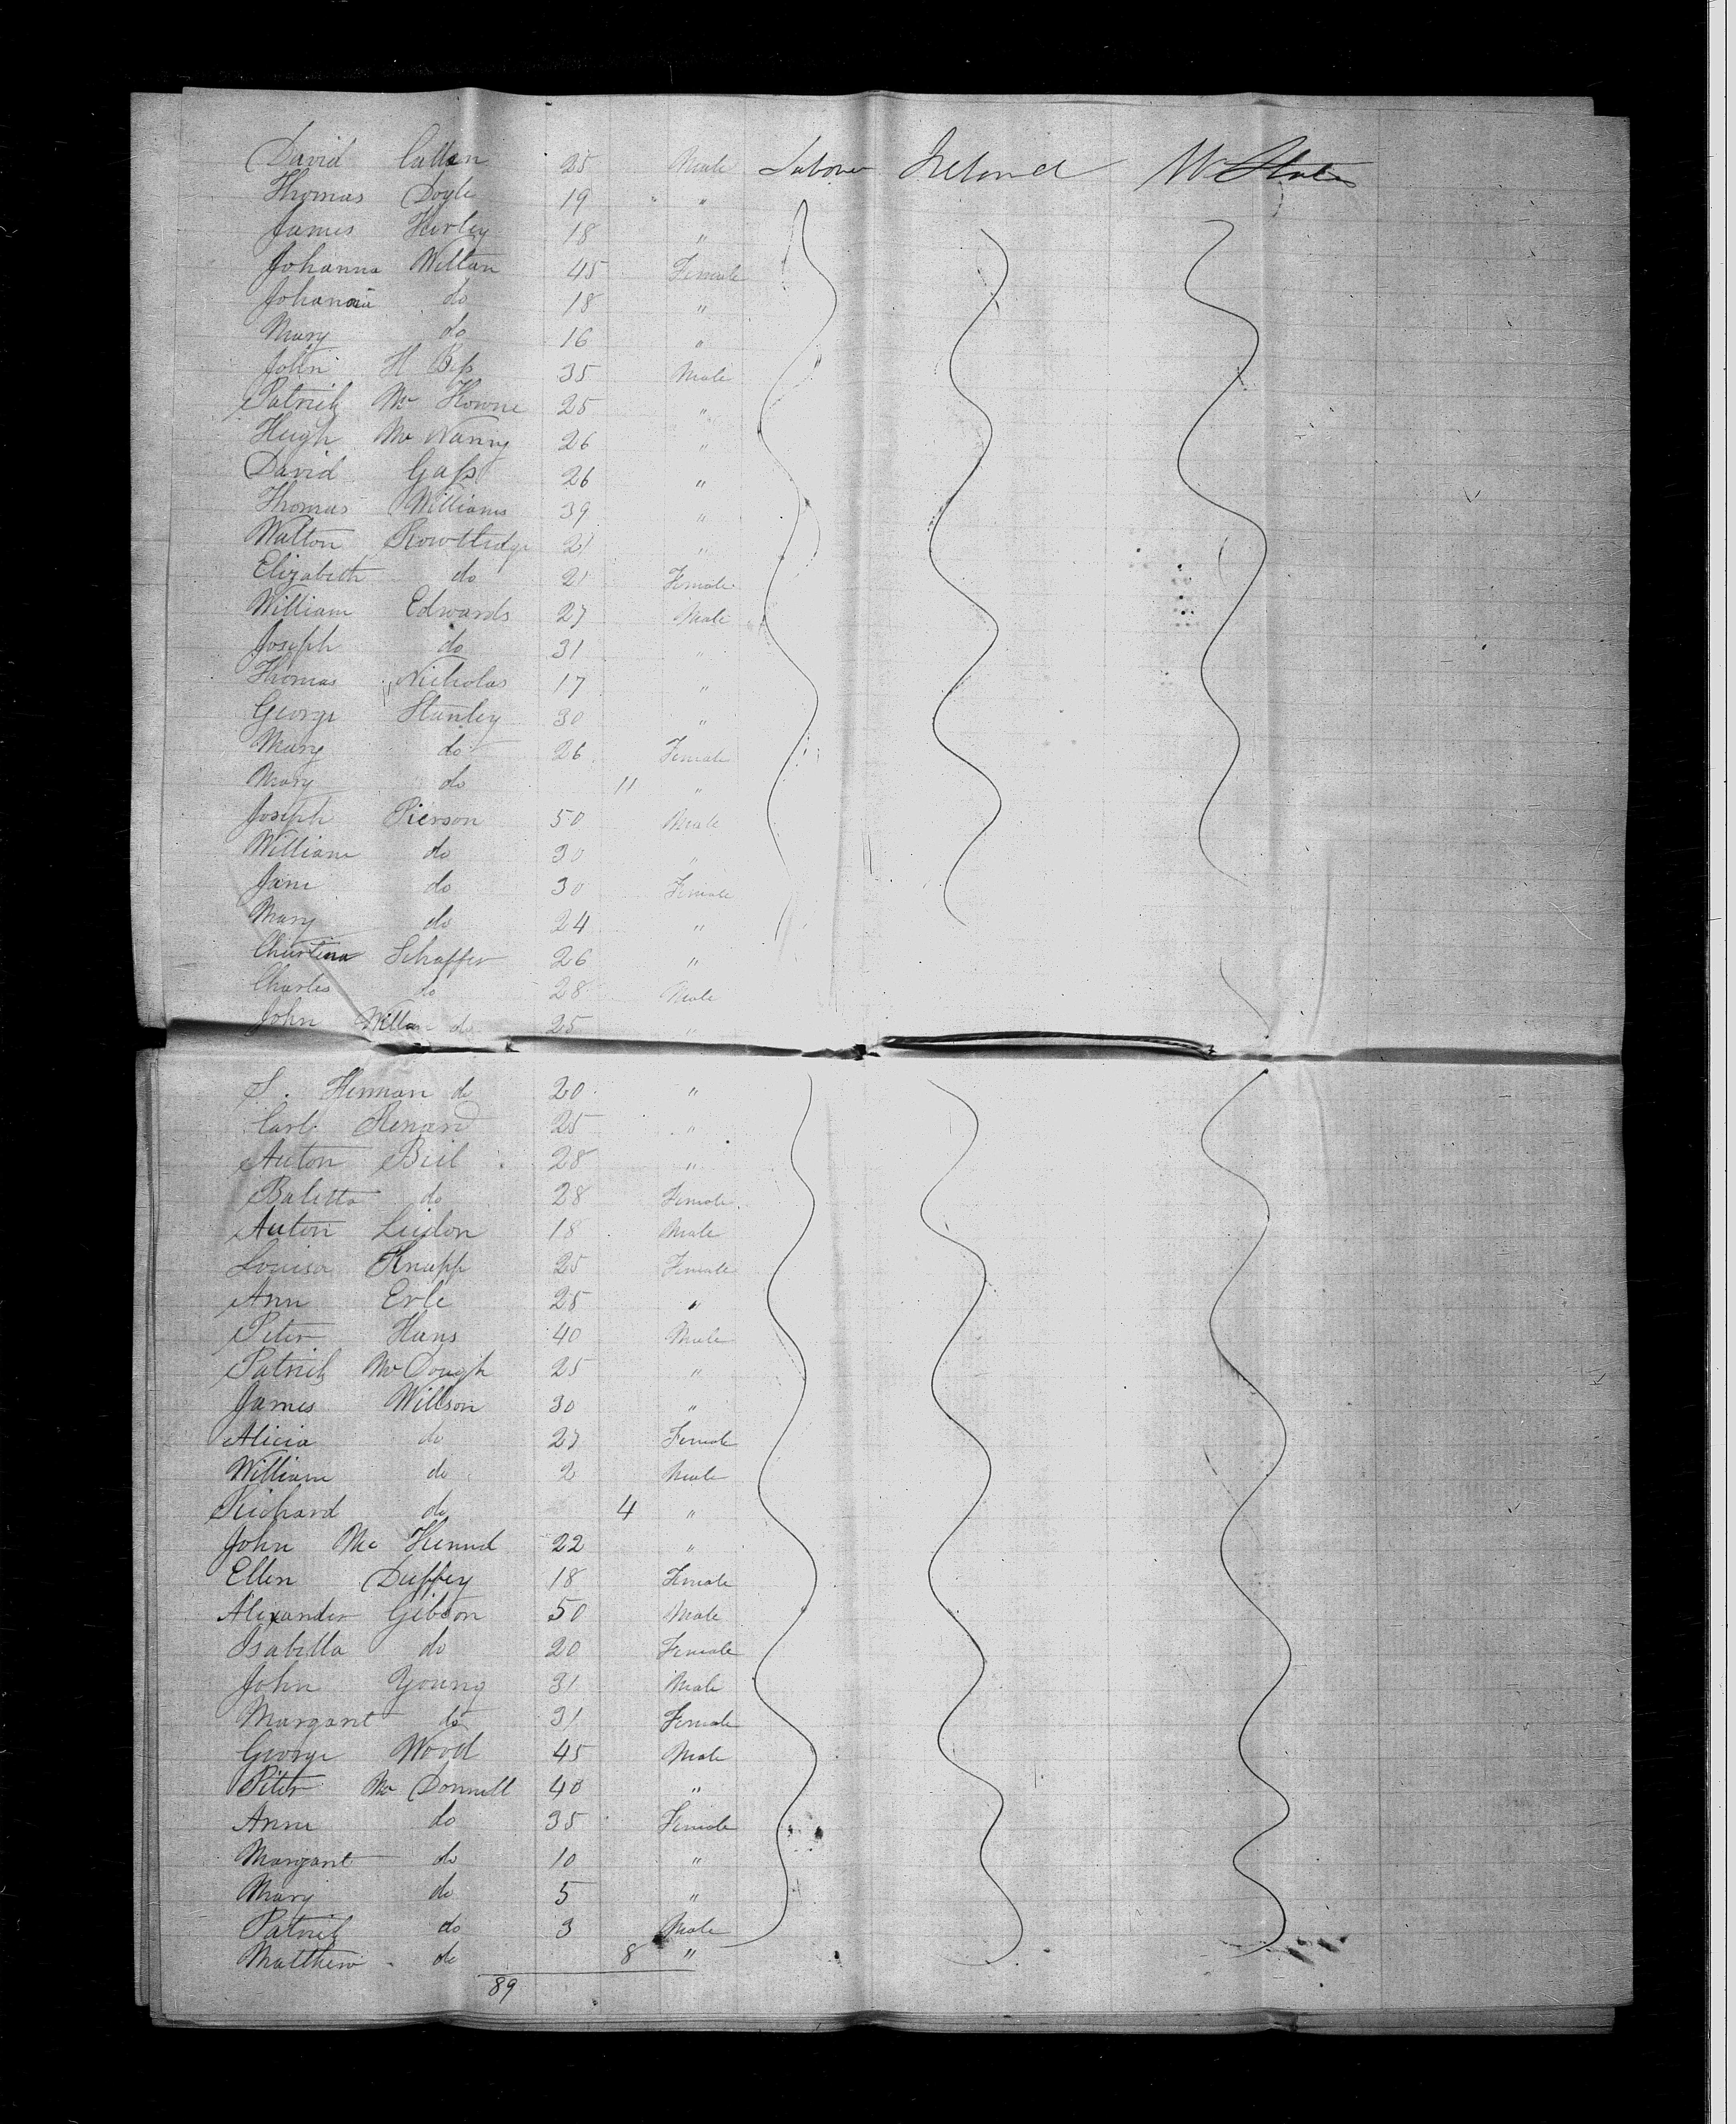 David Callan 25 Male Labour Ireland U States
Thomas Doyle 19 " "
James Hurley 18 "
Johanna Wiltan 45 Female
Johanna do 18 "
Mary do 16 "
John H Bess 35 Male
Patrick Mc Kowne 25 "
Hugh Mc Nanny 26 "
David Gass 26 "
Thomas Williams 39 "
Walton Rowtledge 21 "
Elizabeth do 21 Female
William Edwards 27 Male
Joseph do 31 "
Thomas Nicholas 17 "
George Stanley 30 "
Mary do 26 Female
Mary do 11 "
Joseph Pierson 50 Male
William do 30 "
Jane do 30 Female
Mary do 24 "
Christina Schaffer 26 "
Charles do 28 Male
John Willam do 25 "
S. Herman do 20 "
Carl Renard 25 "
Anton Biel 28 "
Baletta do 28 Female
Anton Leidon 18 Male
Louisa Knapp 25 Female
Ann Erle 25 "
Peter Hans 40 Male
Patrick McDough 25 "
James Willson 30 "
Alicia do 27 Female
William do 2 Male
Richard do 4 "
John Mc Kennd 22 "
Ellen Duffey 18 Female
Alexander Gibson 50 Male
Isabella do 20 Female
John Young 31 Male
Margaret do 31 Female
George Wood 45 Male
Peter Mc Donnell 40 "
Anne do 35 Female
Margaret do 10 "
Mary do 5 "
Patrick do 3 Male
Matthew do 8 "
89